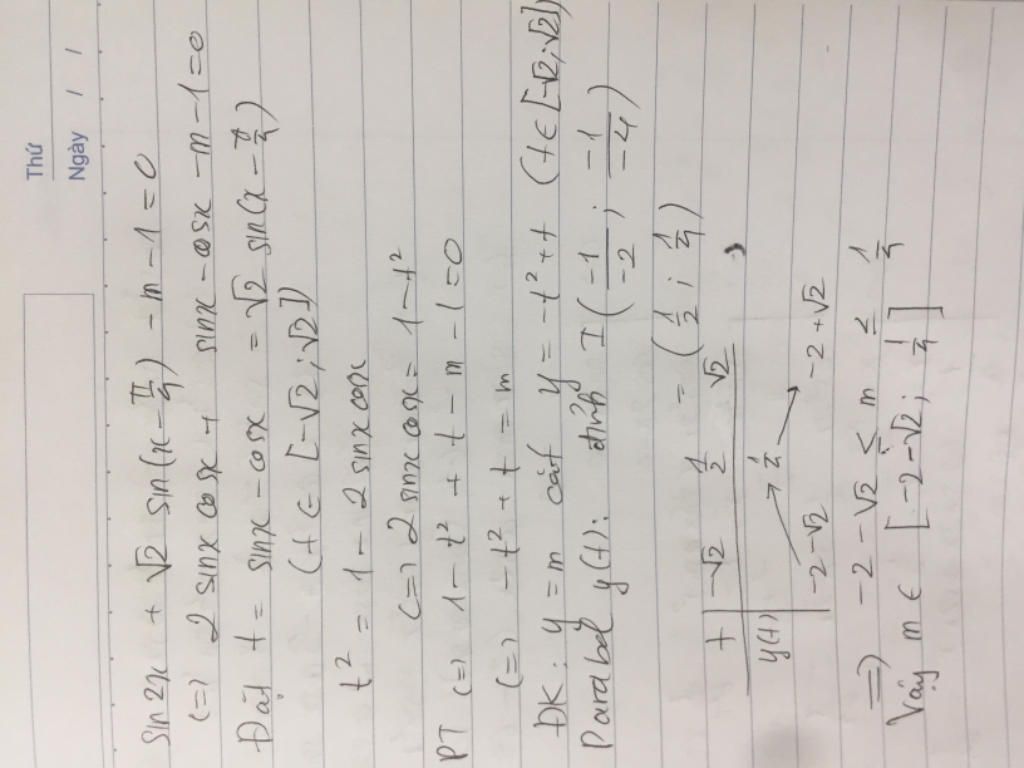 Thứ
Ngày / /
sin2x + √2 sin(x - π/4) - m - 1 = 0
(=) 2 sinx cosx + sinx - cosx - m - 1 = 0
Đặt t = sinx - cosx = √2 sin(x - π/4)
(t ∈ [-√2; √2])
t² = 1 - 2 sinx cosx
(=) 2 sinx cosx = 1 - t²
PT (=) 1 - t² + t - m - 1 = 0
(=) - t² + t = m
ĐK: y = m cắt y = -t² + t (t ∈ [-√2; √2])
Parabol y(t): đỉnh I (-1/-2; -1/-4)
= (1/2; 1/4)
t -√2 1/2 √2
y(t) 1/4
-2-√2 -2+√2
=) -2 - √2 ≤ m ≤ 1/4
Vậy m ∈ [-2-√2; 1/4]